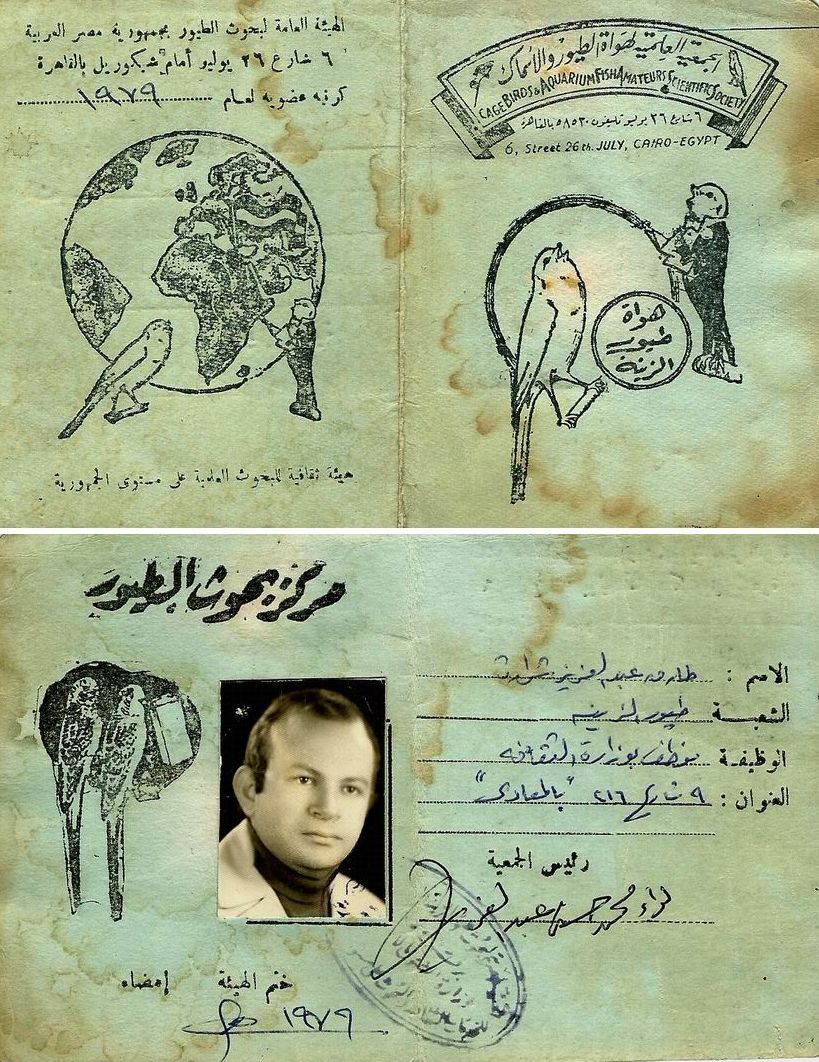 الهيئة العامة لبحوث الطيور بجمهورية مصر العربية
٦ شارع ٢٦ يوليو أمام شيكوريل بالقاهرة
كرنيه عضويه لعام ١٩٧٩
هيئة ثقافية للبحوث العلمية على مستوى الجمهورية
الجمعية العلمية لهواة الطيور والأسماك
CAGE BIRDS & AQUARIUM FISH AMATEURS SCIENTIFIC SOCIETY
٦ شارع ٢٦ يوليو تليفون ٥٨٥٣٠ بالقاهرة
6, Street 26th. JULY, CAIRO-EGYPT
هواة
طيور
الزينة
مركز بحوث الطيور
الاسم : طارق عبد العزيز
الشعبة طيور الزينه
الوظيفة موظف بوزارة الثقافه
العنوان : ٩ شارع ٢١٦ "بالمعادى"
رئيس الجمعية
لواء محمد عبد
ختم الهيئة إمضاء
١٩٧٩